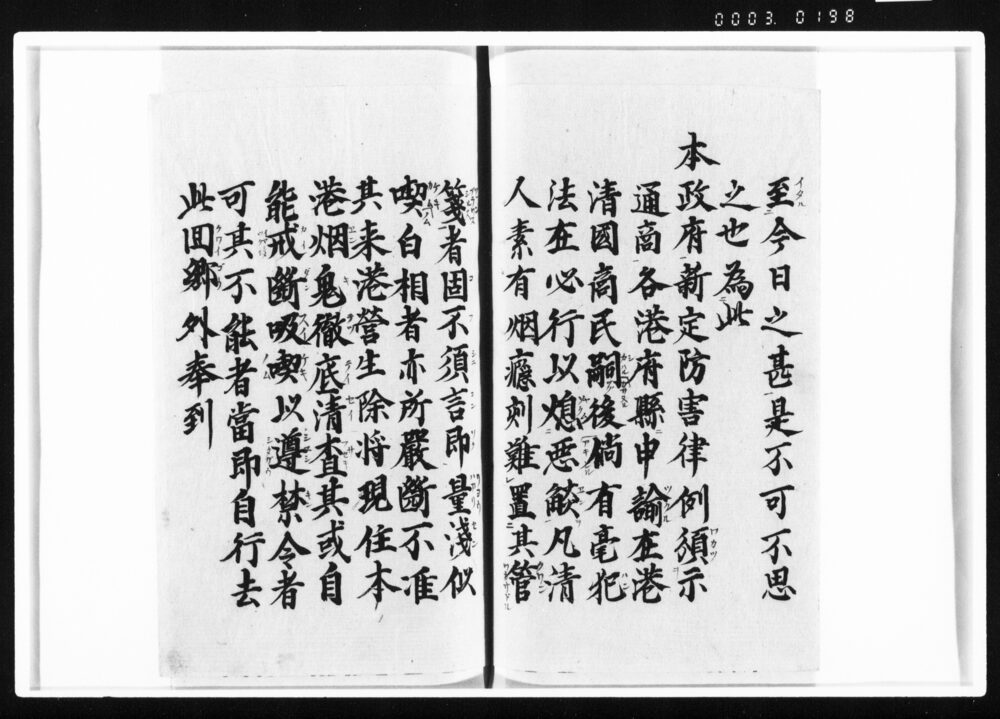 0003.0198
至今日之甚是不可不思
之也為此
本政府新定防害律例須示
通商各港府縣申諭在港
清國商民嗣後倘有毫犯
法在必行以熄惡燄凡清
人素有烟癮刻難置其管
箋者固不須言即量淺似
喫白相者亦所嚴斷不准
其来港營生除将現住本
港烟鬼徹底清査其或自
能戒斷吸喫以遵禁令者
可其不能者當即自行去
此回鄉外奉到